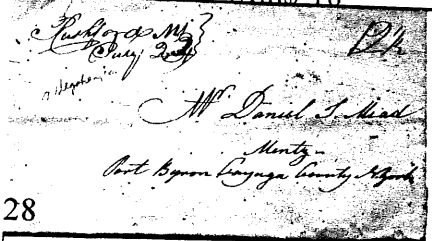 Rushford NY
July 22
12½
Mr Daniel S. Mead
Mentz
Port Byron Cayuga County N York
28